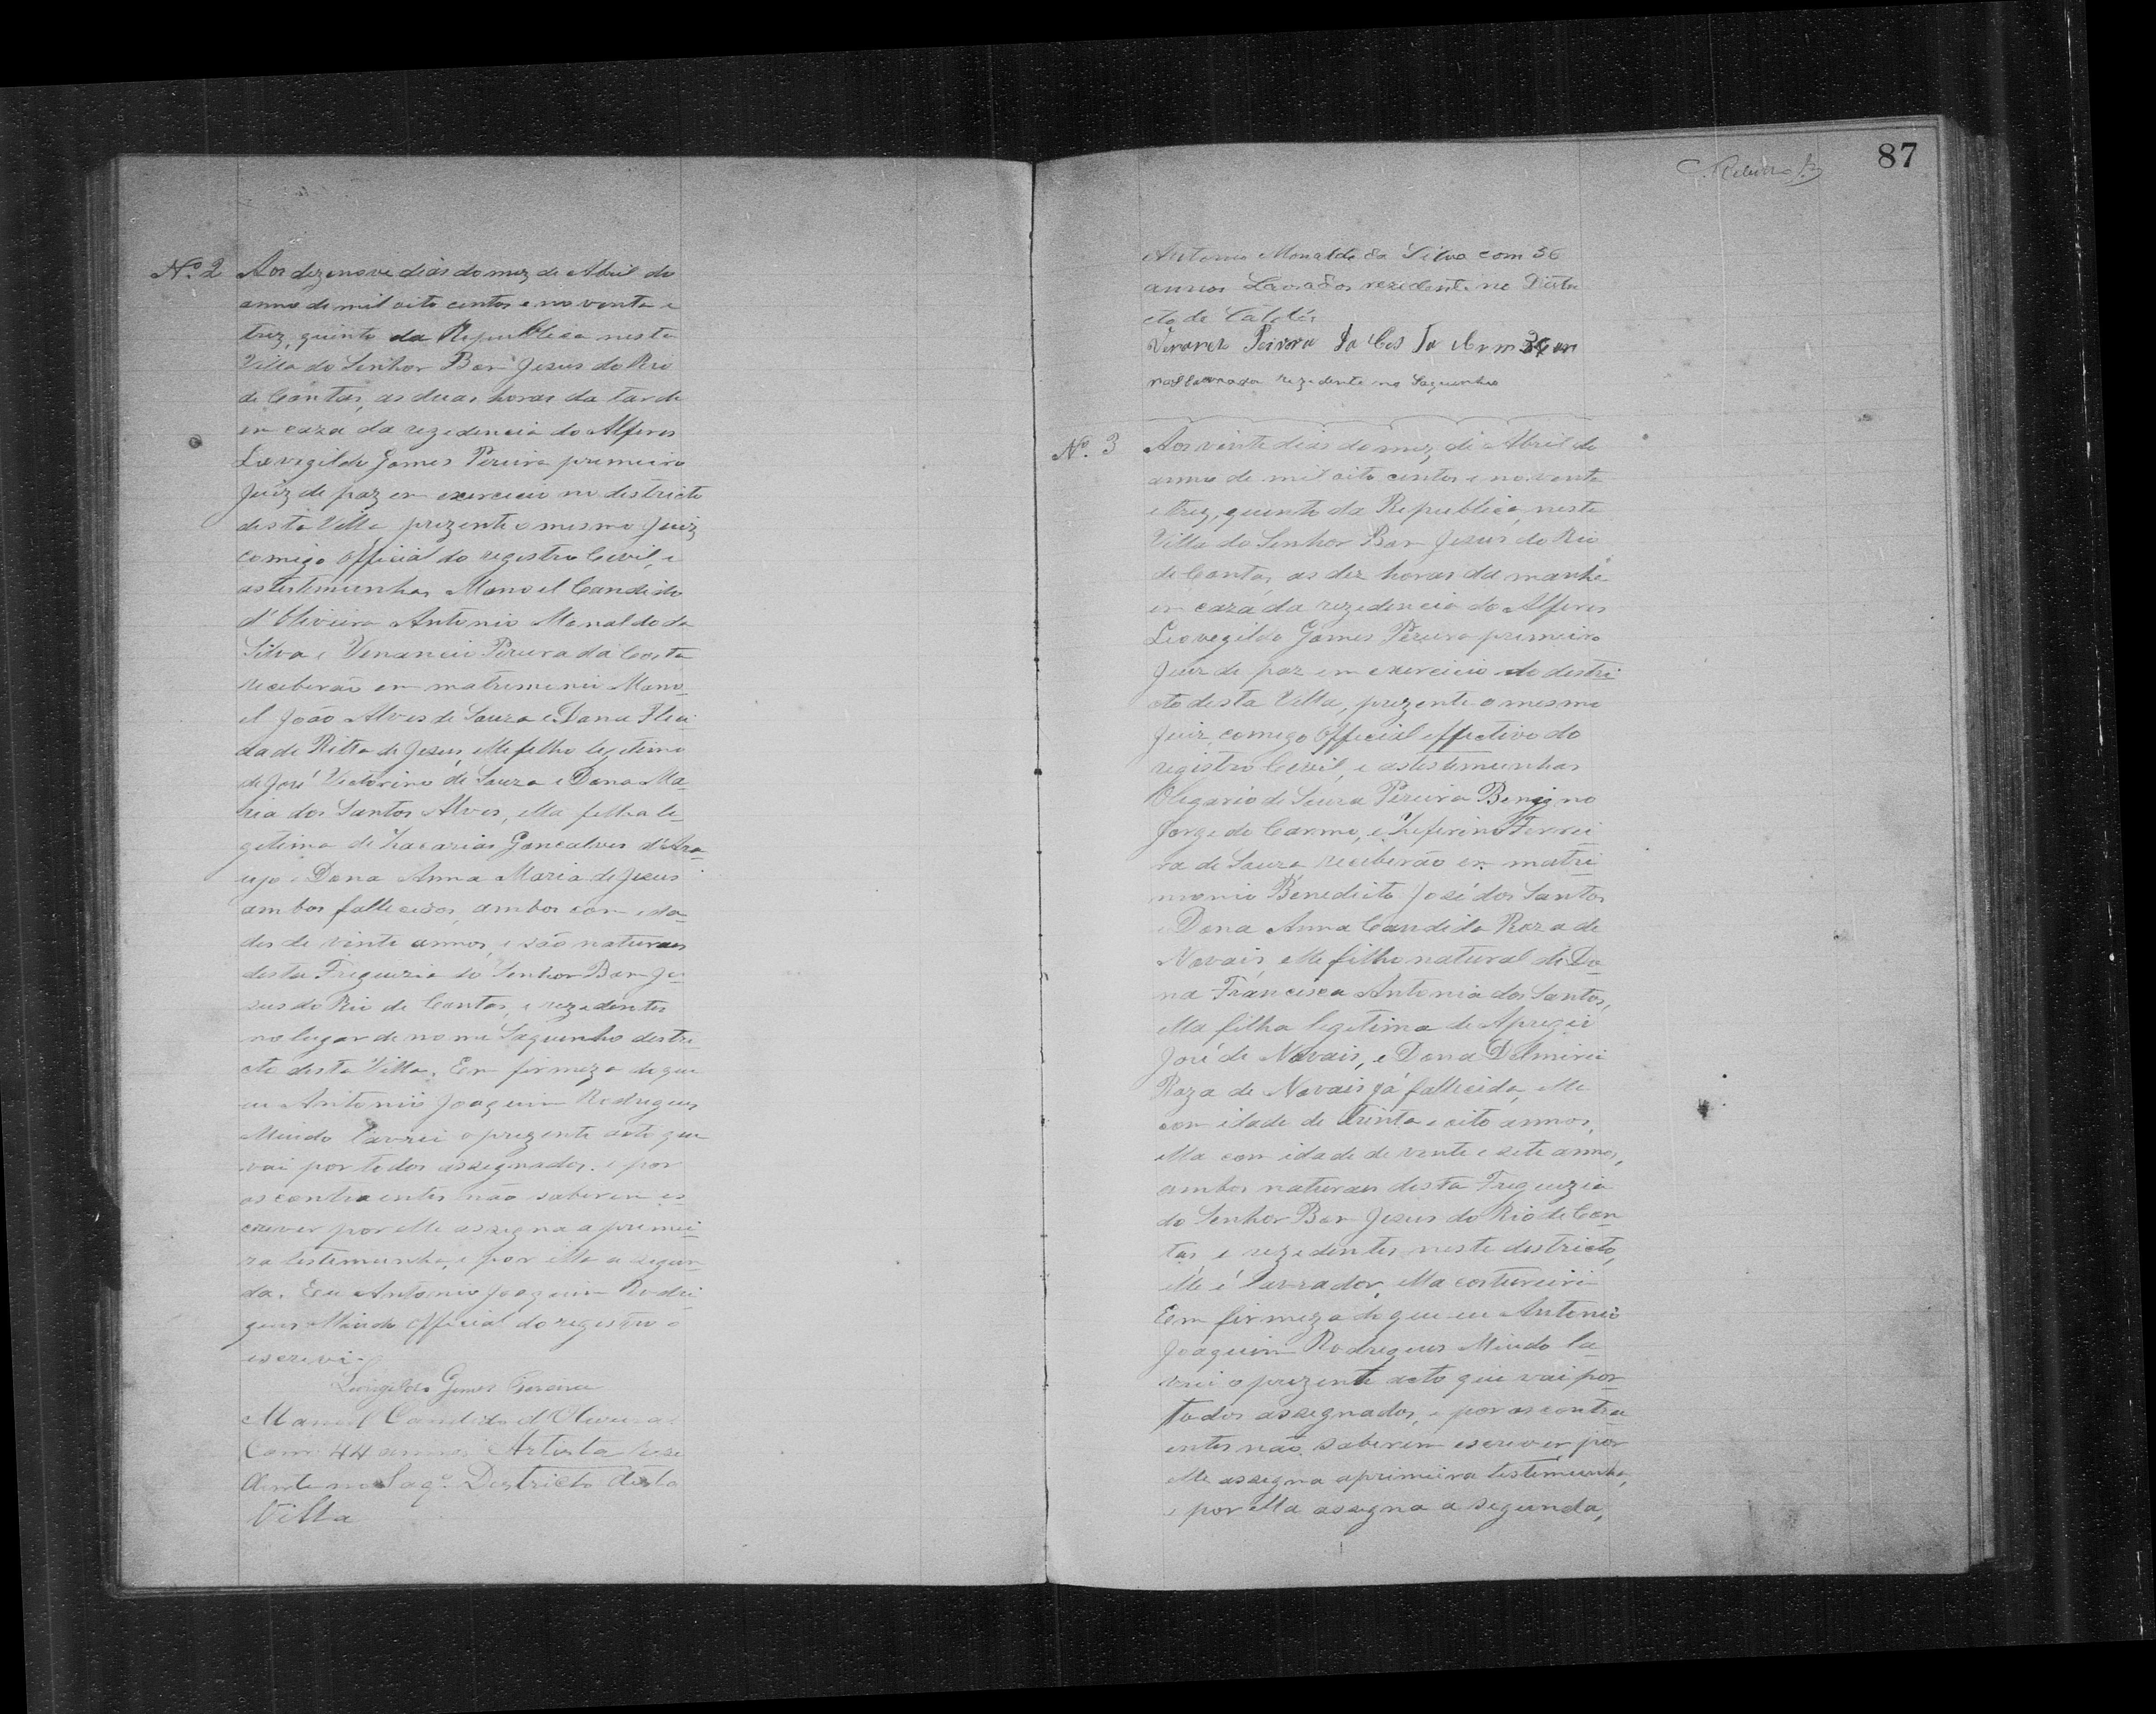 Nº 2 Aos dezenove dias do mez de Abril do
anno de mil oito centos e noventa e
trez, quinto da Republica nesta
Villa do Senhor Bom Jesus do Rio
de Contas, as duas horas da tarde
em caza da rezedencia do Alferes
Leovegildo Gomes Pereira primeiro
Juiz de paz em exercicio no districto
desta Villa prezente o mesmo Juiz
comigo official do registro Civil, e
as testemunhas Manoel Candido
d'Oliveira Antonio Monaldo da
Silva e Venancio Pereira da Costa
receberão em matrimonio Mano-
el João Alves de Souza e Dona
da de Ritta de Jesus, elle filho legitimo
de José Victorino de Souza e Dona Ma-
ria dos Santos Alves, ella filha le-
gitima de Zacarias Gonçalves d'Ara-
ujo e Dona Anna Maria de Jesus
ambos fallecidos, ambos com ida-
des de vinte annos, e são naturaes
desta Freguezia do Senhor Bom Je-
sus do Rio de Contas, e rezedentes
no lugar de nome Saquinho destri-
cto desta Villa. Em firmeza de que
eu Antonio Joaquim Rodrigues
Mindo lavrei o prezente acto que
vai por todos assegnados. e por
os contraentes não saberem es
crever por elle assegna a primei-
ra testemunha, e por ella a segun-
da. Eu Antonio Joaquim Rodri-
gues Mindo official do registro o
escrevi.
Leovigildo Gomes Pereira
Manoel Candido d'Oliveira
Com 44 annos Artista Rese
dente no Saqº. Destricto desta
Villa
87
C. Ribeiro
Antonio Monaldo da Silva com 36
annos Lavrador rezedente no Distri
cto de Catolés
Venancio Pereira da Costa com 36 an
nos Lavrador rezedente no Saquinho
Nº. 3 Aos vinte dias do mez de Abril do
anno de mil oito centos e noventa
e trez, quinto da Republica, nesta
Villa do Senhor Bom Jesus do Rio
de Contas, as dez horas da manhã
em caza da rezedencia do Alferes
Leovegildo Gomes Pereira primeiro
Juiz de paz em exercicio do destri-
cto desta Villa, prezente o mesmo
Juiz, comego official effectivo do
registro Civil, e as testemunhas
Olegario de Souza Pereira Benigno
Jorge do Carmo, e Zeferino Ferrei
ra de Souza receberão em matri-
monio Benedicto José dos Santos
e Dona Anna Candida Roza de
Novais, elle filho natural de Do-
na Francisca Antonia dos Santos,
ella filha legitima de Aprigio
José de Novais, e Dona Delmira
Roza de Novais já fallecida, elle
com idade de trinta e oito annos,
ella com idade de vente e sete annos,
ambos naturaes desta Freguezia
do Senhor Bom Jesus do Rio de Con-
tas, e rezedentes neste destricto,
elle é lavrador, ella costureira
Em firmeza de que eu Antonio
Joaquim Rodregues Mindo la-
vrei o prezente acto que vai por
todos assegnados, e por os contra
entes não saberem escrever por
elle assegna a primeira testemunha,
e por ella assegna a segunda,